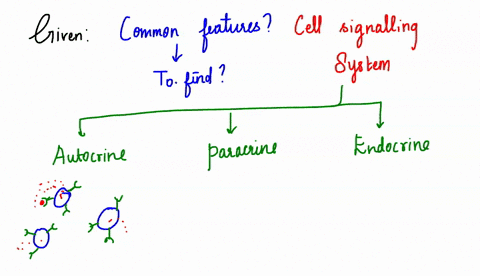 Given: Common features? Cell signalling
To find? System
Autocrine Paracrine Endocrine